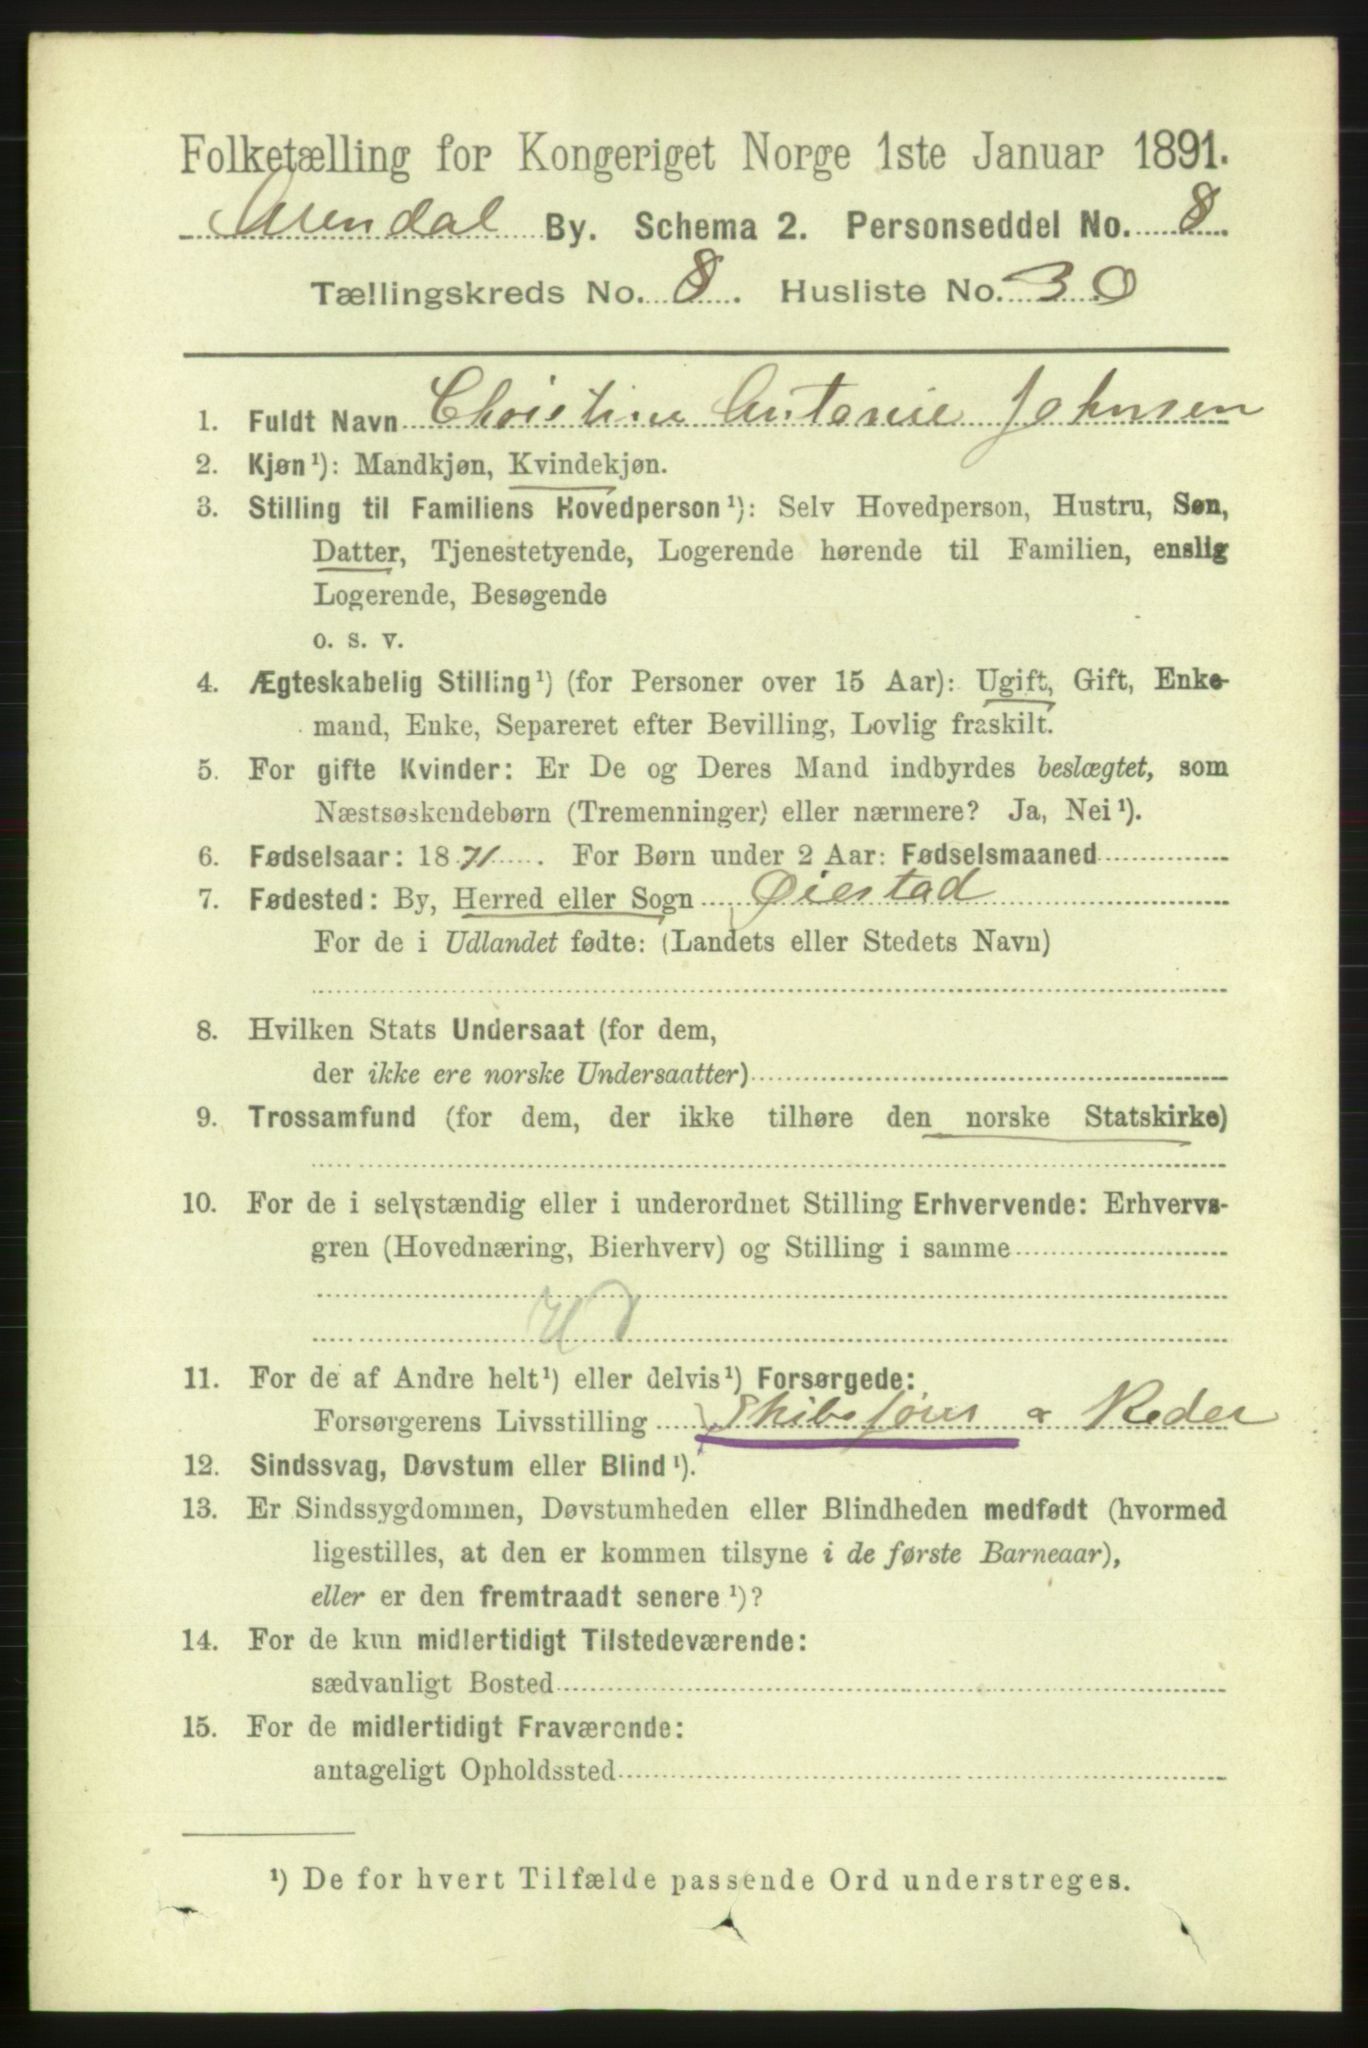 Folketælling for Kongeriget Norge 1ste Januar 1891.
Arendal By. Schema 2. Personseddel No. 8.
Tællingskreds No. 8. Husliste No. 30
1. Fuldt Navn Christine Antonie Johnsen
2. Kjøn¹): Mandkjøn, Kvindekjøn.
3. Stilling til Familiens Hovedperson¹): Selv Hovedperson, Hustru, Søn,
Datter, Tjenestetyende, Logerende hørende til Familien, enslig
Logerende, Besøgende
o. s. v.
4. Ægteskabelig Stilling¹) (for Personer over 15 Aar): Ugift, Gift, Enke-
mand, Enke, Separeret efter Bevilling, Lovlig fraskilt.
5. For gifte Kvinder: Er De og Deres Mand indbyrdes beslægtet, som
Næstsøskendebørn (Tremenninger) eller nærmere? Ja, Nei¹).
6. Fødselsaar: 1871. For Børn under 2 Aar: Fødselsmaaned
7. Fødested: By, Herred eller Sogn Øiestad
For de i Udlandet fødte: (Landets eller Stedets Navn)
8. Hvilken Stats Undersaat (for dem,
der ikke ere norske Undersaatter)
9. Trossamfund (for dem, der ikke tilhøre den norske Statskirke)
10. For de i selvstændig eller i underordnet Stilling Erhvervende: Erhvervs-
gren (Hovednæring, Bierhverv) og Stilling i samme
11. For de af Andre helt¹) eller delvis¹) Forsørgede:
Forsørgerens Livsstilling Skibsfører & Reder
12. Sindssvag, Døvstum eller Blind¹).
13. Er Sindssygdommen, Døvstumheden eller Blindheden medfødt (hvormed
ligestilles, at den er kommen tilsyne i de første Barneaar),
eller er den fremtraadt senere¹)?
14. For de kun midlertidigt Tilstedeværende:
sædvanligt Bosted
15. For de midlertidigt Fraværende:
antageligt Opholdssted
¹) De for hvert Tilfælde passende Ord understreges.